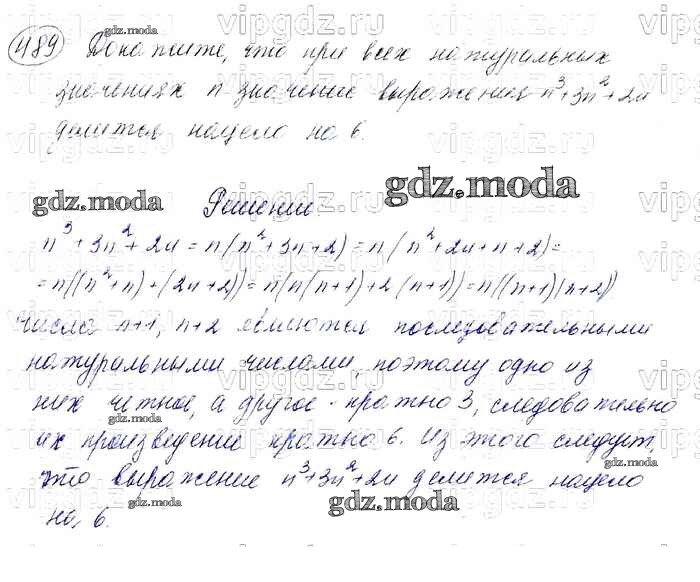 489 Докажите, что при всех натуральных
значениях n значение выражения n³+3n²+2n
делится нацело на 6.
Решение
n³+3n²+2n = n(n²+3n+2) = n(n²+2n+n+2) =
= n((n²+n)+(2n+2)) = n(n(n+1)+2(n+1)) = n((n+1)(n+2))
Числа n+1, n+2 являются последовательными
натуральными числами, поэтому одно из
них четное, а другое - кратно 3, следовательно
их произведение кратно 6. Из этого следует,
что выражение n³+3n²+2n делится нацело
на 6.
gdz.moda
gdz.moda
gdz.moda
gdz.moda
gdz.moda
gdz.moda
gdz.moda
gdz.moda
vipgdz.ru